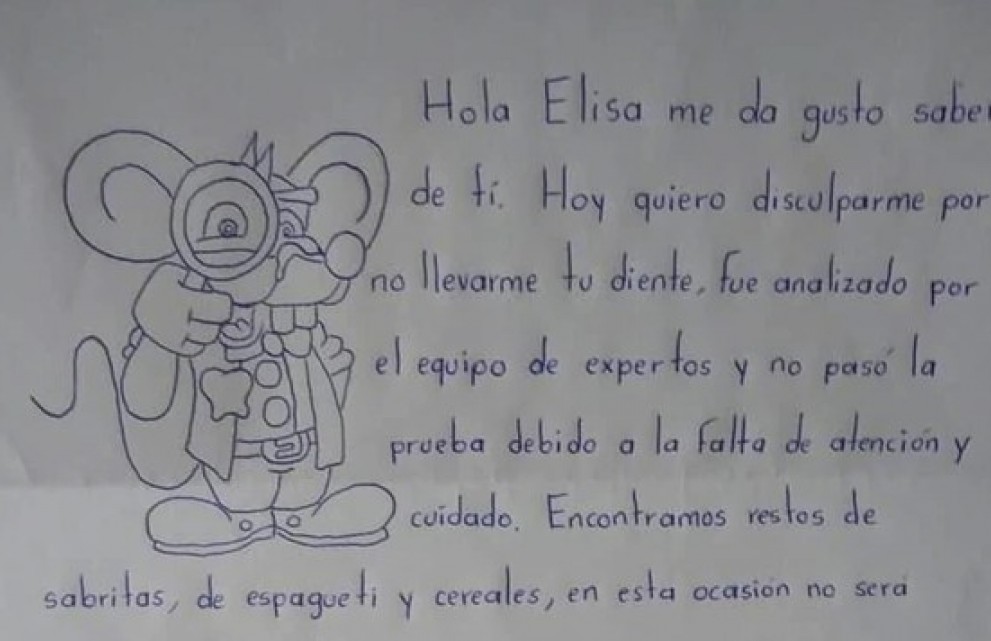 Hola Elisa me da gusto saber
de tí. Hoy quiero disculparme por
no llevarme tu diente, fue analizado por
el equipo de expertos y no pasó la
prueba debido a la falta de atención y
cuidado. Encontramos restos de
sabritas, de espagueti y cereales, en esta ocasión no será